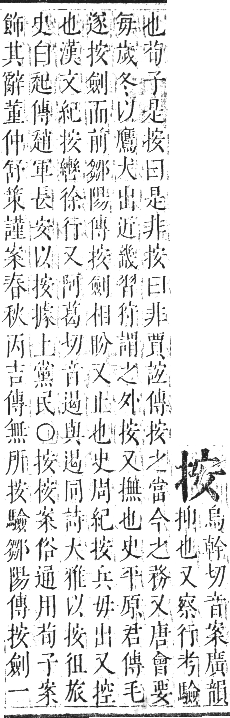 按烏幹切音案廣韻
抑也又察行考驗
也荀子是按曰是非按曰非賈誼傳按之當今之務又唐會要
每歲冬以鷹犬出近畿習狩謂之外按又撫也史平原君傳毛
遂按劍而前鄒陽傳按劍相眄又止也史周紀按兵毋出又控
也漢文紀按轡徐行又阿葛切音遏與遏同詩大雅以按徂旅
史白起傳趙軍長安以按據上黨民○按按案俗通用荀子案
飾其辭董仲舒策謹案春秋丙吉傳無所按驗鄒陽傳按劍一